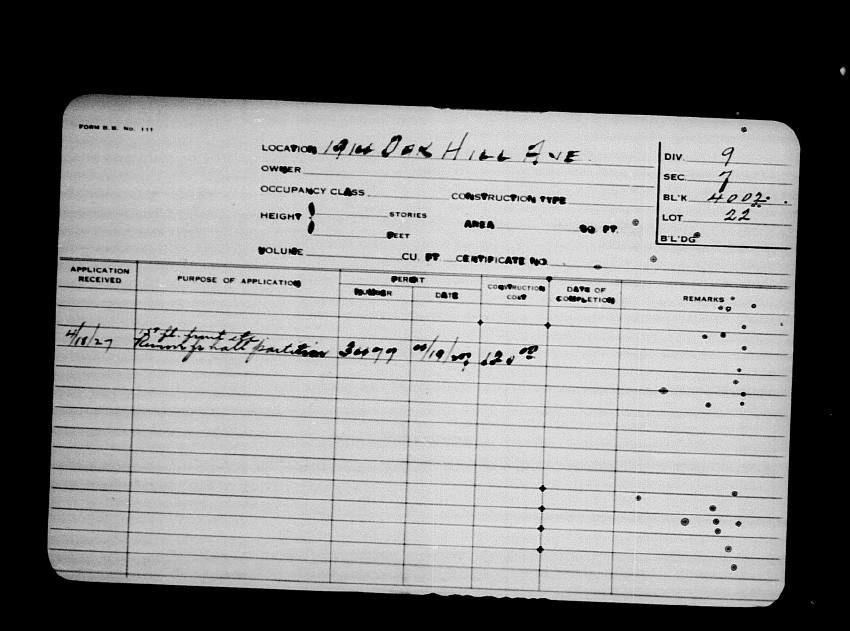 FORM B.B. No. 111
LOCATION 1914 Dox Hill Ave
OWNER
OCCUPANCY CLASS CONSTRUCTION TYPE
HEIGHT STORIES AREA SQ FT.
FEET
VOLUME CU FT CERTIFICATE NO.
DIV. 9
SEC. 7
BL'K 4002
LOT 22
B'L'DG
APPLICATION RECEIVED
PURPOSE OF APPLICATION
PERMIT
NUMBER DATE
CONSTRUCTION COST
DATE OF COMPLETION
REMARKS
4/18/27 1st fl. front etc
hall partition /19/ 120.00